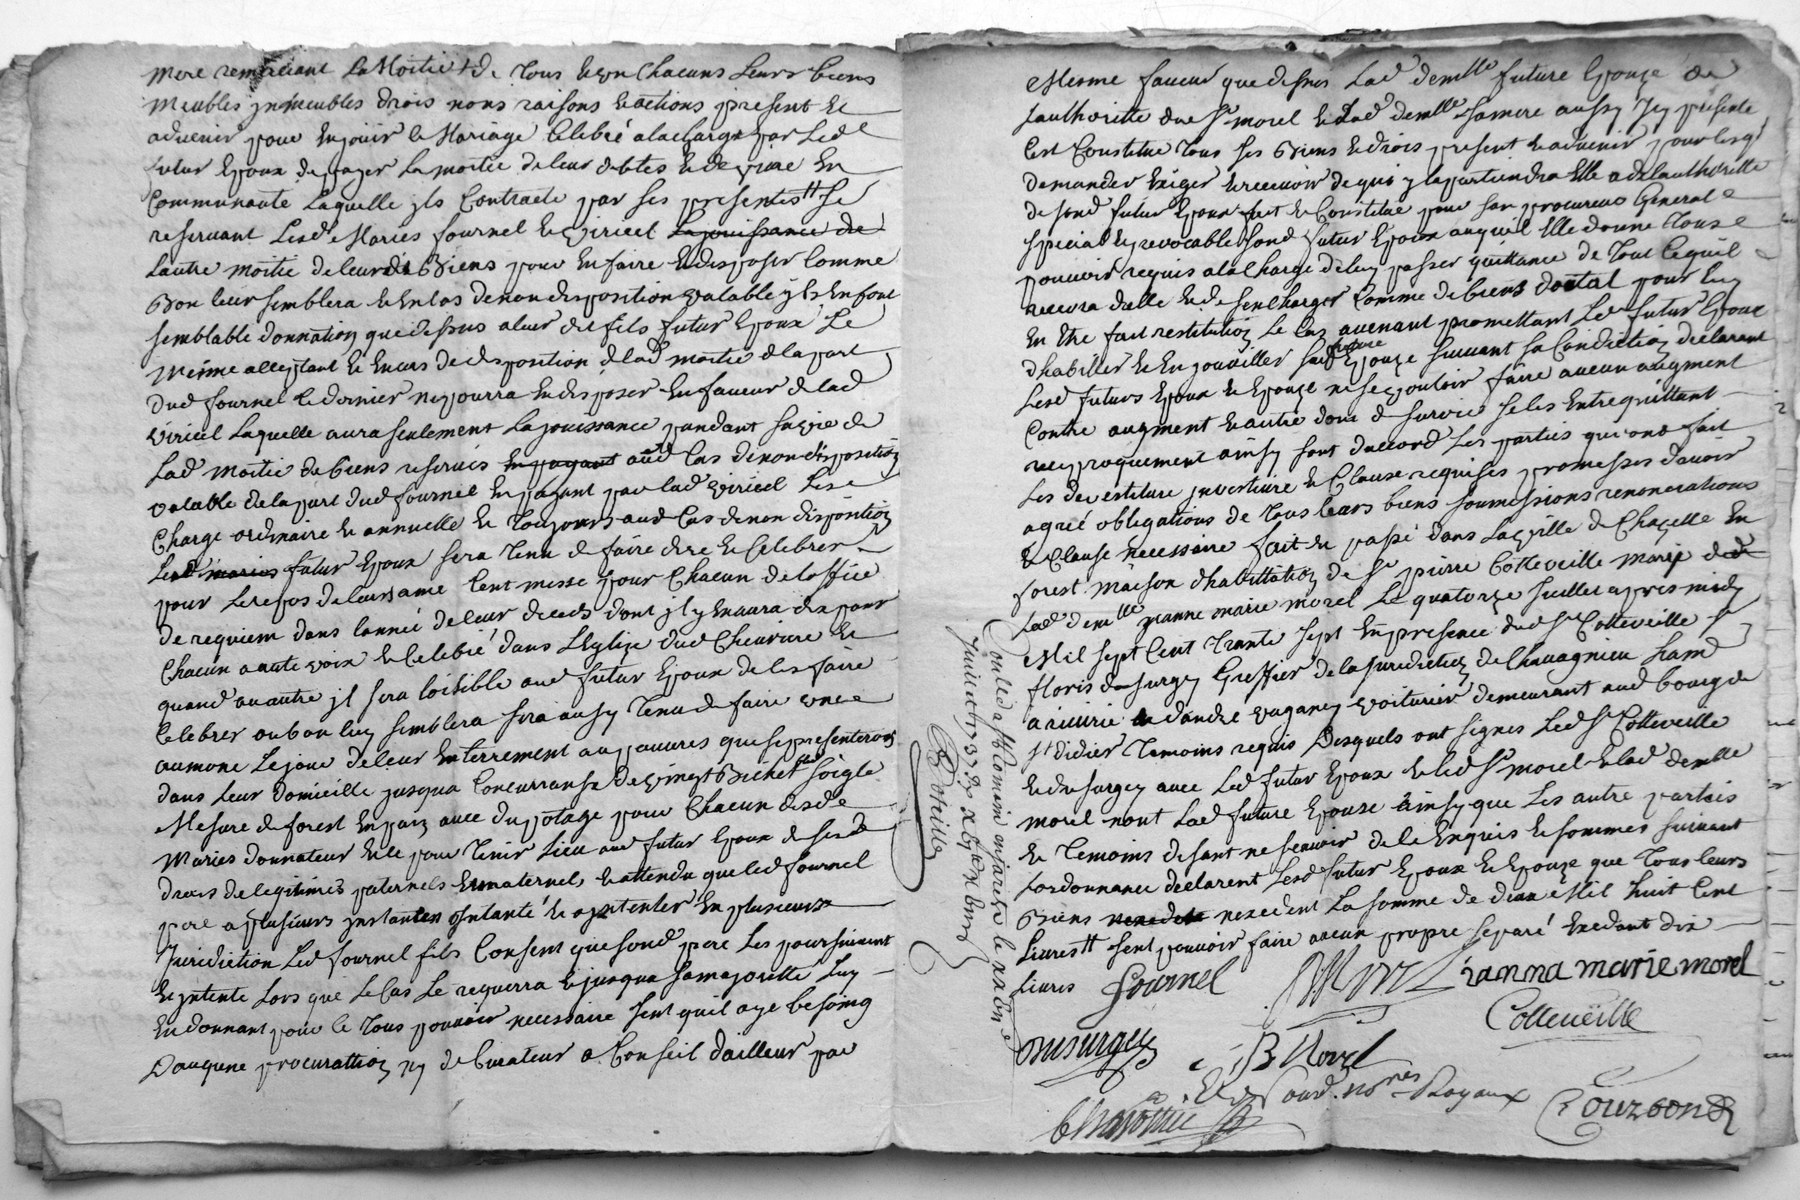 mere remettant la Moitié de tous Et un Chacuns Leurs biens
Meubles ynmeubles drois noms raisons Et actions present Et
advenir pour En jouir le Mariage Celebré ala charge par Led
futur Epoux de payer La moitié de leur debtes Et de vivre En
Communauté Laquelle yls Contracte par ses presentes se
reservant Lesd Maries fournel Et viricel La jouissance de
Lautre moitié de leurd Biens pour En faire Et disposer Comme
Bon leur semblera Et En Cas de non disposition valable yls En font
semblable donnation que dessus a leur dit fils futur Epoux Le
Méme acceptant Et En cas de disposition de lad moitié de la part
Dud fournel Ce dernier ne pourra En disposer En faveur de lad
viricel Laquelle aura seulement La jouissance pandant sa vie de
Lad moitié de biens reservés En payant aud Cas de non disposition
valable de la part dud fournel En payant par lad viricel Les
Charge ordinaire Et annuelle Et Toujours aud Cas de non disposition
Led maries futur Epoux sera Tenu de faire dire Et Celebrer
pour Le repos de leurs ame Cent messe pour Chacun de loffice
De requiem dans lannée de leur deceds dont jl y En aura dix pour
Chacun a aute voix Et Celebré dans LEglize dud Chevriere Et
quand au autre jl sera loisible aud futur Epoux de les faire
Celebrer ou bon luy semblera sera aussy Tenu de faire une
aumone Le jour de leur Enterrement au pauvres que se presenteront
dans Leur domicille jusqua Concurranse de vingt Bichet soigle
Mesure de forest En pain avec du potage pour Chacun desd
Maries donnateur Et le pour Tenir Lieu aud futur Epoux de ses
Drois de legitimes paternels Et maternel, Et attendu que led fournel
pere a plusieurs ynstances yntanté Et a yntenter En plusieurs
Juridiction Led fournel fils Consent que sond pere Les poursuivent
Et yntente Lors que Le Cas Le requerra Et jusqua sa majorette Luy
En donnant pour Ce Tous pouvoir necessaire sent quil aye besoing
Daucune procurattion ny de Curateur & Conseil dailleur par
Mesme faveur que dessus Lad demlle future Epouze de
Lauthoritté due Sr morel Et Lad demlle sa mere aussy Jcy presente
Cest Constitue Tous ses Biens Et drois present Et advenir pour lesq
Demander Exiger Et recevoir de qui yl apartiendra Elle a de lauthoritte
de sond futur Epoux fait Et Constitue pour son procureur General
special Et yrevocable sond futur Epoux auquil Elle donne Tous
pouvoir requis ala Charge de luy passer quittance de Tout Ce quil
recevra delle Et de sen Charger Comme de biens dottal pour luy
En Etre fait restitution Le Cas avenant promettant Led futur Epoux
dhabiller Et En jouailler sad future Epouze suivant sa Condiction declarant
Lesd futurs Epoux Et Epouze ne se vouloir faire aucun augment
Contre augment Et autre dons de survie se les Entrequittant
reciproquement ainsy sont daccord Les parties qui ont fait
Les devestiture jnvestiure Et Clause requises promesses davoir
agreé obligations de Tous leurs biens soumissions renonciations
& Clause necessaire fait Et passé dans La ville de Chazelle En
forest Maison dhabittation de Sr pierre Cotteveille marie de
Lad demlle jeanne marie morel Le quatorze juillet apres midy
Mil sept Cent Trante sept En presence dud Sr Cotteveille Sr
floris dusurgey Greffier de la juridiction de Chavagnieu
a rivirie Et dandre vaganey voiturier demeurant aud bourg de
St didier Temoins requis Lesquels ont signes Led Sr Cotteveille
Et dusurgey avec Led futur Epoux Et led Sr morel Et lad demlle
morel nont Lad future Epouze ainsy que Les autre parties
Et Temoins disant ne sçavoir de le Enquis Et sommes suivant
Lordonnance declarent Lesd futur Epoux Et Epouze que Tous leurs
Biens nexedent La somme de deux Mil huit Cent
Livres sent pouvoir faire aucun propre separé Exedant dix
Livres
fournel
ianna marie morel
Colleveille
Dusurgey
JB Morel
nores Royaux
Bourbon
Controlé a St Romain en jarest le
juillet 1737